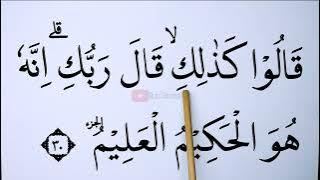 قَالُوْا كَذٰلِكِۙ قَالَ رَبُّكِۗ اِنَّهٗ
هُوَ الْحَكِيْمُ الْعَلِيْمُ ۞ الجزء ٣٠